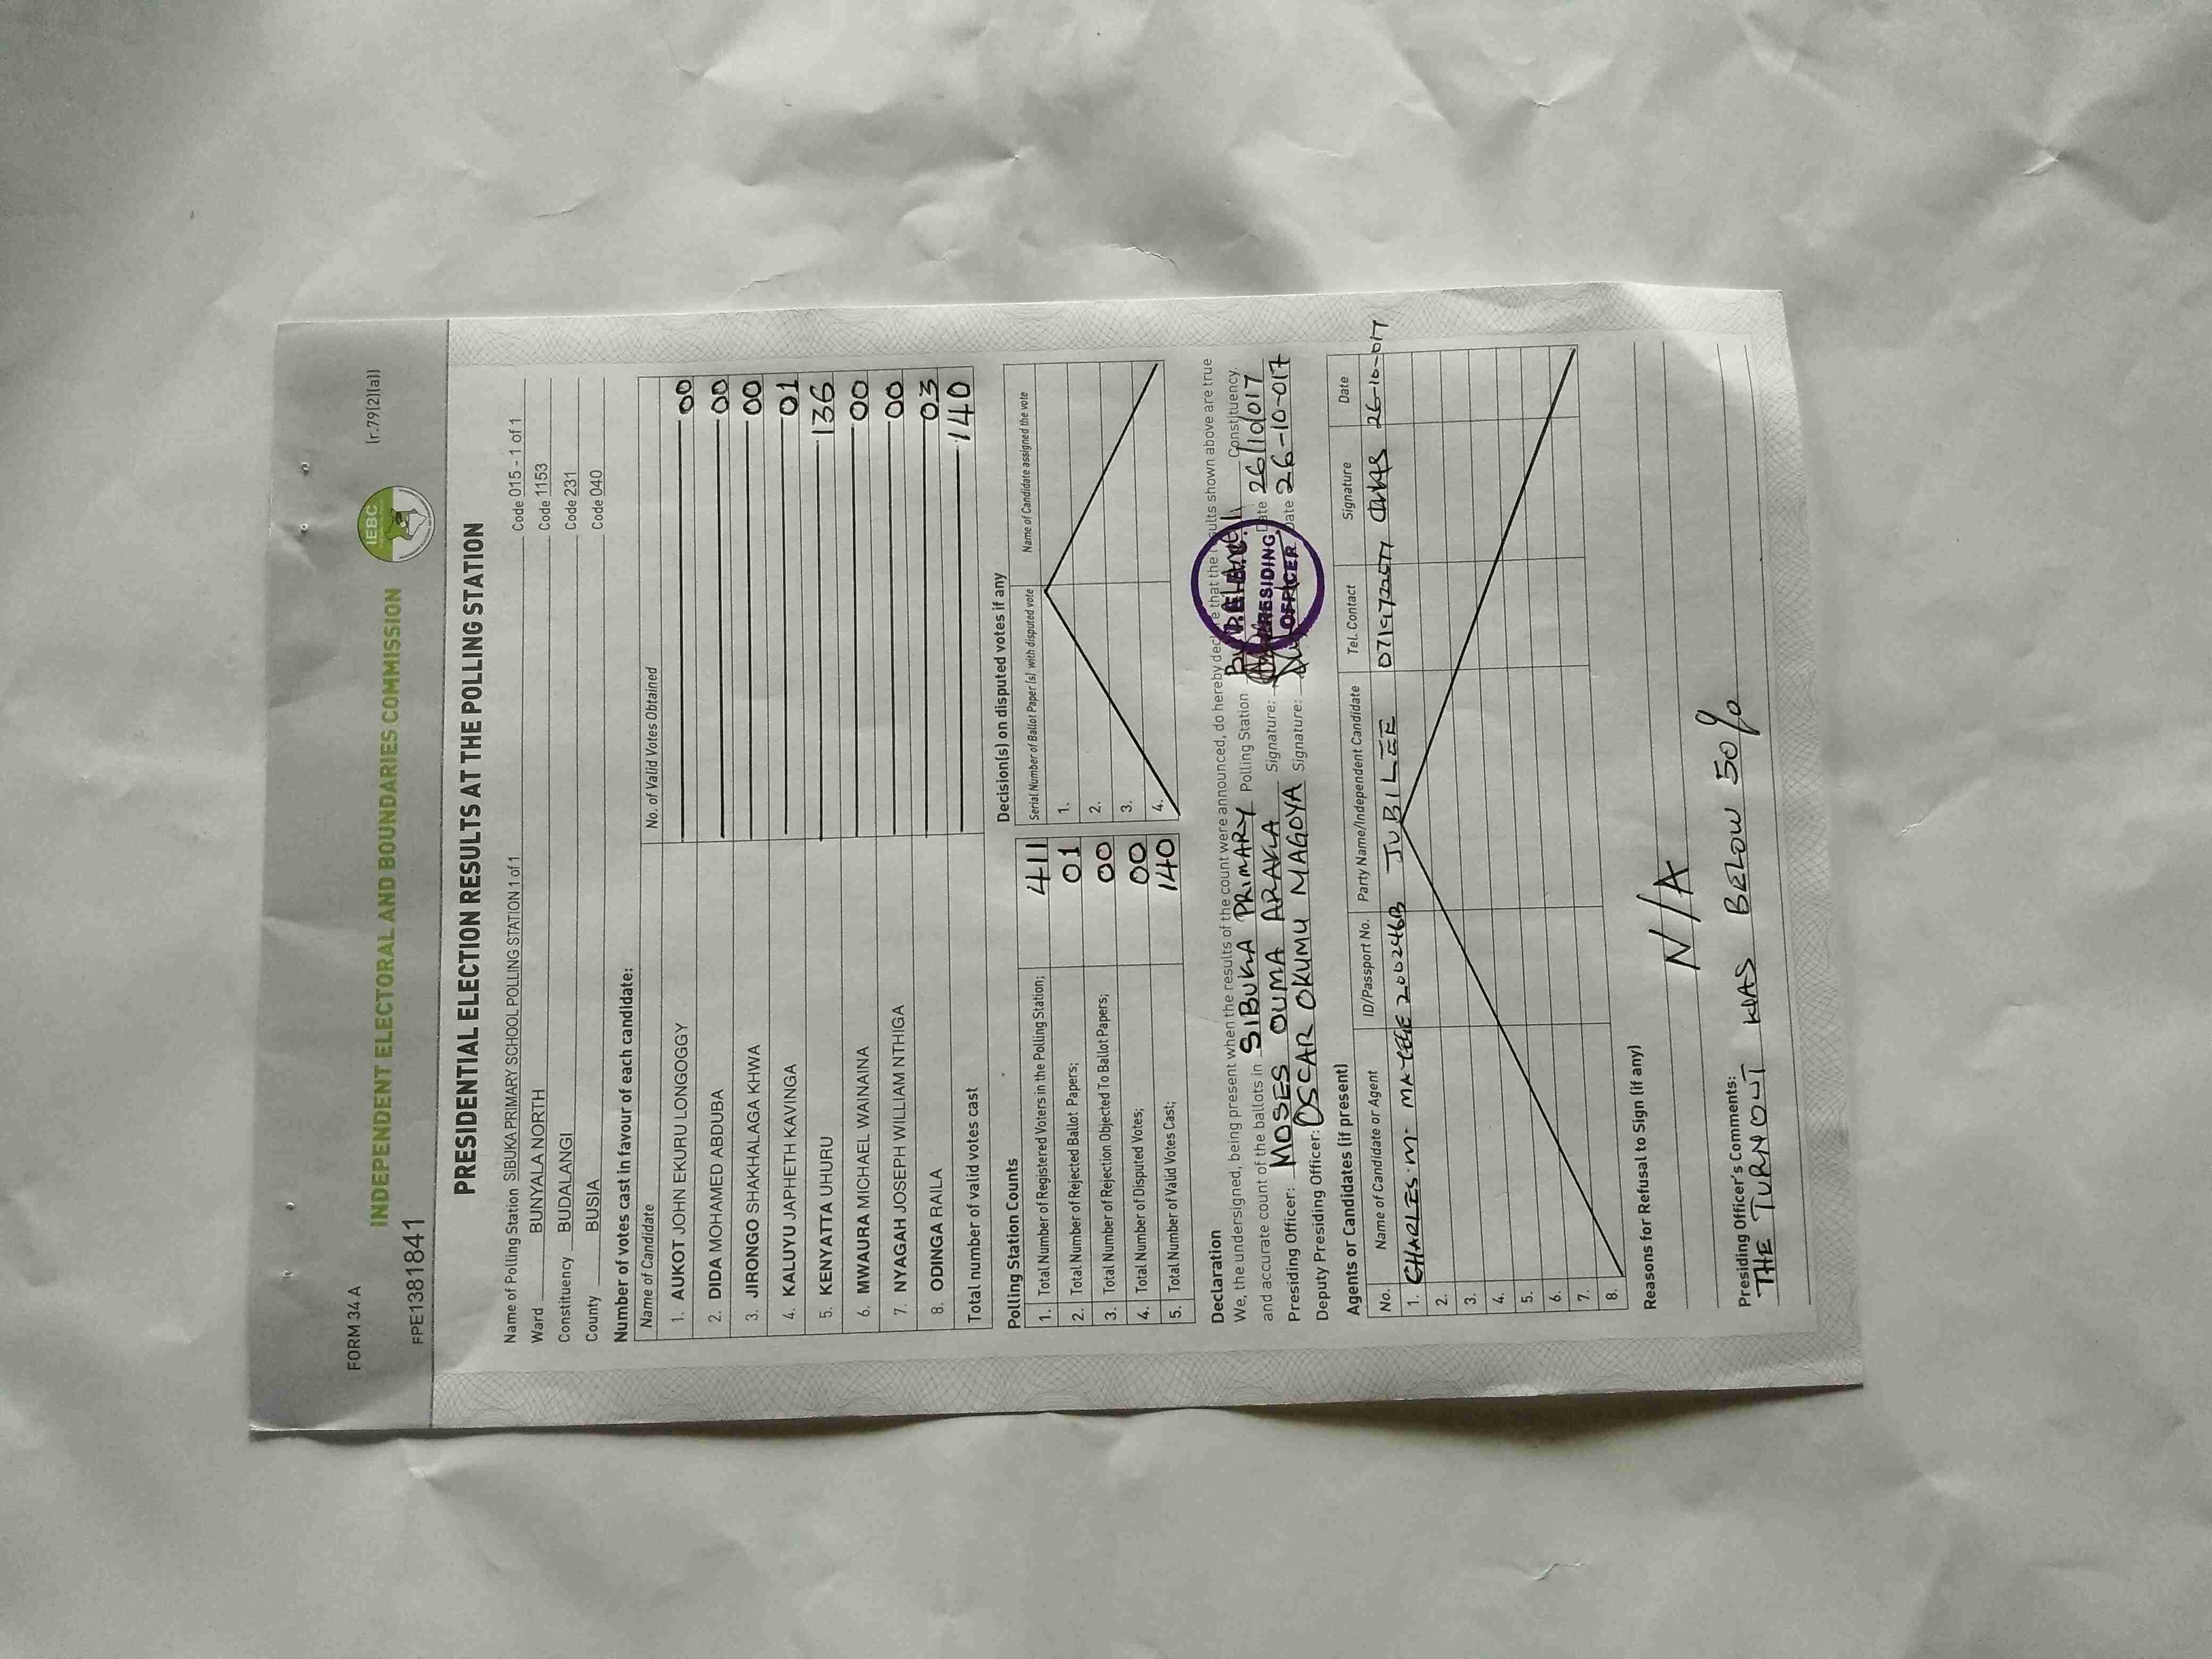 FORM 34 A
[r.79(2)(a)]
INDEPENDENT ELECTORAL AND BOUNDARIES COMMISSION
IEBC
FPE1381841
PRESIDENTIAL ELECTION RESULTS AT THE POLLING STATION
Name of Polling Station SIBUKA PRIMARY SCHOOL POLLING STATION 1 of 1 Code 015 - 1 of 1
Ward BUNYALA NORTH Code 1153
Constituency BUDALANGI Code 231
County BUSIA Code 040
Number of votes cast in favour of each candidate:
Name of Candidate No. of Valid Votes Obtained
1. AUKOT JOHN EKURU LONGOGGY 00
2. DIDA MOHAMED ABDUBA 00
3. JIRONGO SHAKHALAGA KHWA 00
4. KALUYU JAPHETH KAVINGA 01
5. KENYATTA UHURU 136
6. MWAURA MICHAEL WAINAINA 00
7. NYAGAH JOSEPH WILLIAM NTHIGA 00
8. ODINGA RAILA 03
Total number of valid votes cast 140
Polling Station Counts
1. Total Number of Registered Voters in the Polling Station; 411
2. Total Number of Rejected Ballot Papers; 01
3. Total Number of Rejection Objected To Ballot Papers; 00
4. Total Number of Disputed Votes; 00
5. Total Number of Valid Votes Cast; 140
Decision(s) on disputed votes if any
Serial Number of Ballot Paper (s) with disputed vote Name of Candidate assigned the vote
1.
2.
3.
4.
Declaration
We, the undersigned, being present when the results of the count were announced, do hereby declare that the results shown above are true
and accurate count of the ballots in SIBUKA PRIMARY Polling Station Constituency.
Presiding Officer: MOSES OUMA ARAKLA Signature: Date 26/10/017
Deputy Presiding Officer: OSCAR OKUMU MAGOYA Signature: Date 26-10-017
PRESIDING
OFFICER
Agents or Candidates (if present)
No. Name of Candidate or Agent ID/Passport No. Party Name/Independent Candidate Tel. Contact Signature Date
1. CHARLES M. JUBILEE 26-10-017
2.
3.
4.
5.
6.
7.
8.
Reasons for Refusal to Sign (if any)
N/A
Presiding Officer's Comments:
THE TURNOUT WAS BELOW 50%